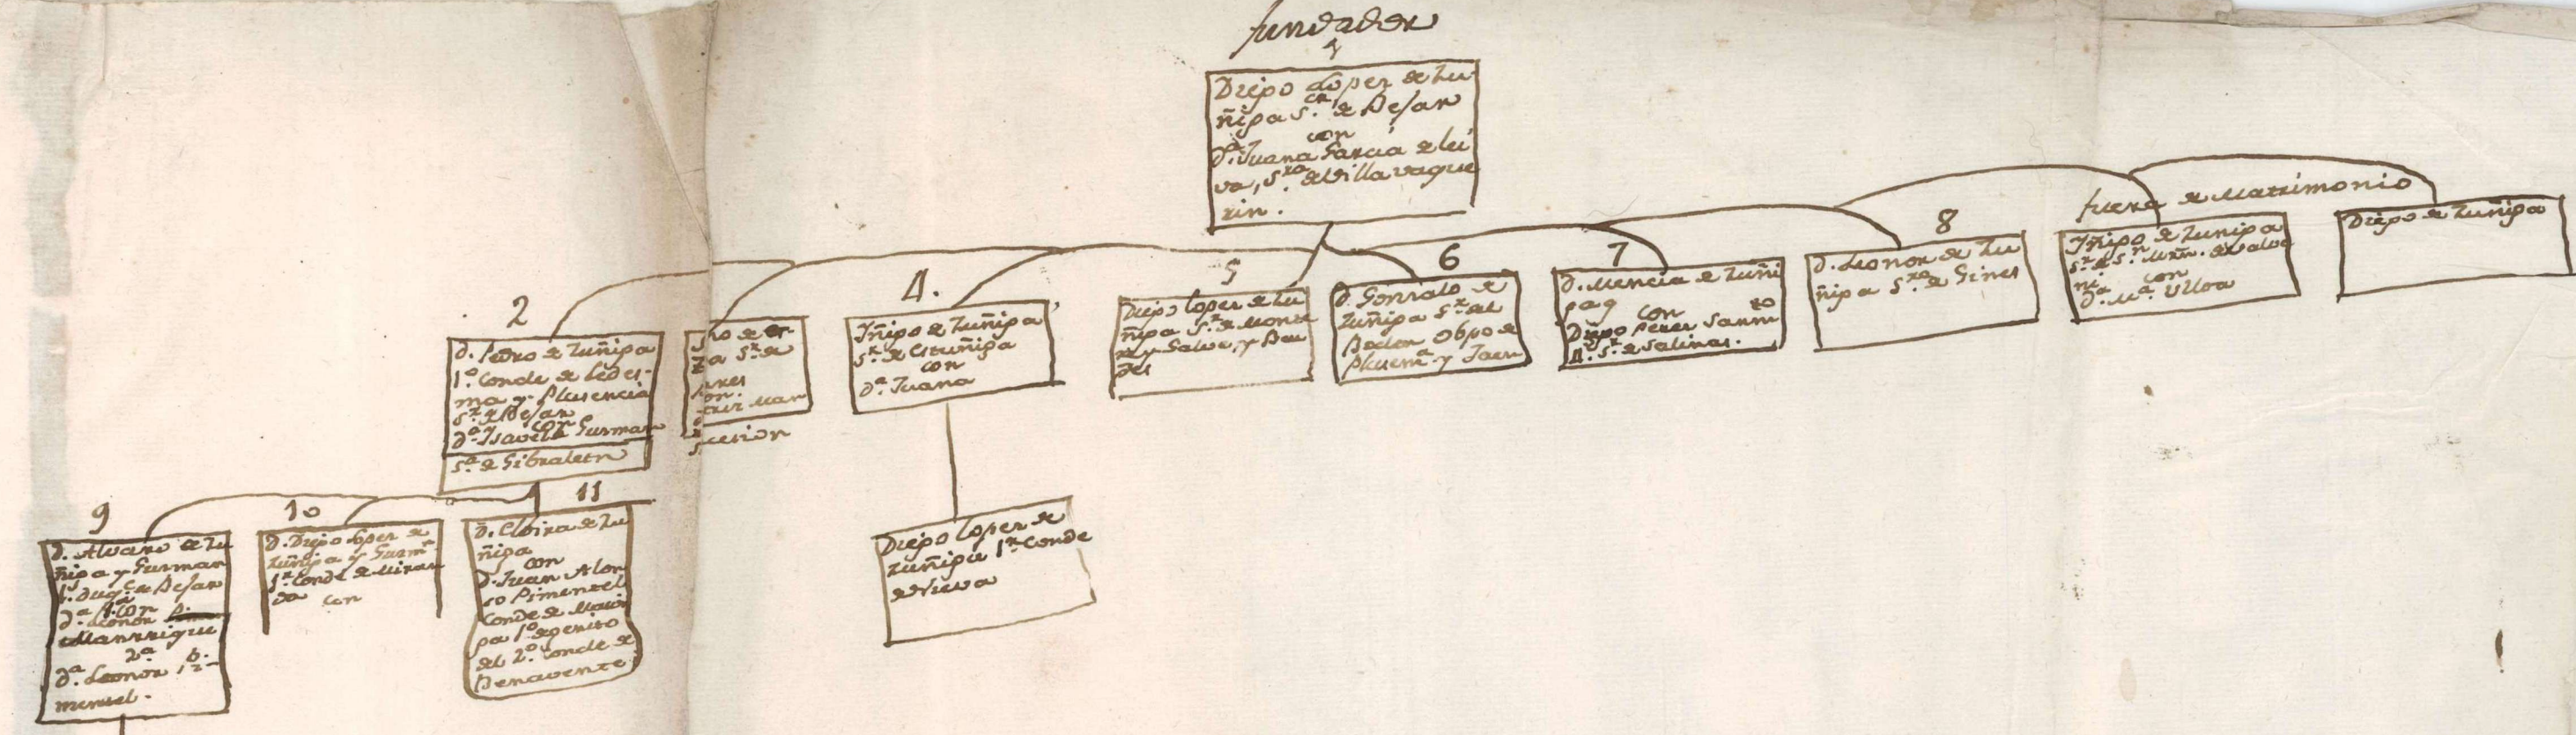 fundador
1
Diego Lopez de Zu
ñiga S.or de Bejar
con
D.a Juana Garcia de Lei
va, S.ra de Villavaque
rin.
2
D. Pedro de Zuñiga
1.º Conde de Ledes-
ma y Plasencia
S.r de Bejar
con
D.a Isavel de Guzman
S.a de Gibraleon
ho de
za S.r de
ares
on.
Man
cesion
4.
Yñigo de Zuñiga
S.r de Estuñiga
con
D.a Juana
5
Diego Lopez de Zu
ñiga S.r de Monte
rrey Salva y Bai
des
6
D. Gonzalo de
Zuñiga S.r del
Obpo de
Plasen.a y Jaen
7
D. Mencia de Zuñi
ga
con
Diego Perez Sarm.to
S.r de Salinas.
8
D. Leonor de Zu
ñiga S.ra de Gines
fuera de Matrimonio
Yñigo de Zuñiga
S.r de S.n Mrn. de Valve
ni
con
D.a M.a Ulloa
Diego de Zuñiga
9
D. Alvaro de Zu
ñiga y Guzman
1.º Duq.e de Bejar
1.a con
D.a Leonor
Manrrique
2.a
D.a Leonor Pi
mentel.
10
D. Diego Lopez de
Zuñiga y Guzm.n
1.r Conde de Miran
da
con
11
D. Elvira de Zu
ñiga
con
D. Juan Alon
so Pimentel
Conde de Maior
ga 1.º
del 2.º Conde de
Benavente
Diego Lopez de
Zuñiga 1.r Conde
de Nieva